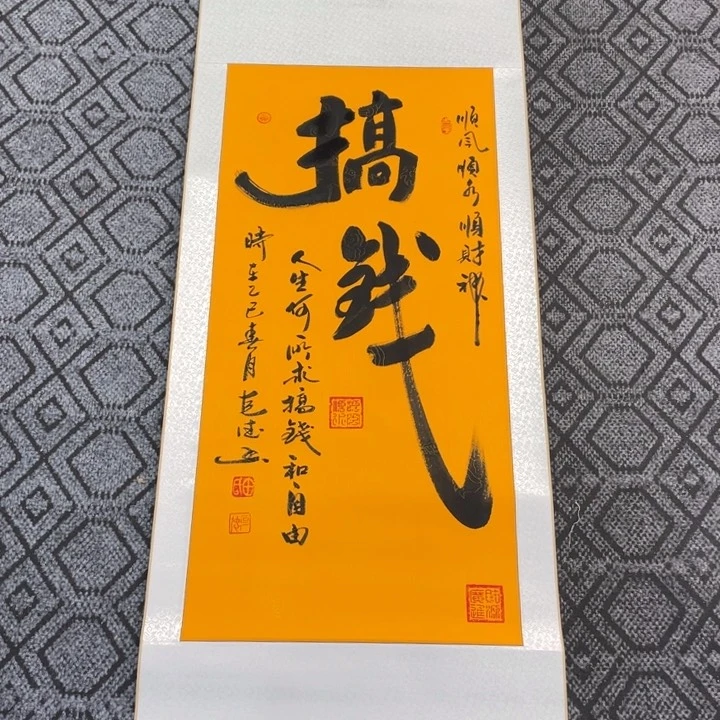 順風順水順財神
搞錢
人生何所求搞錢和自由
時在乙巳春月